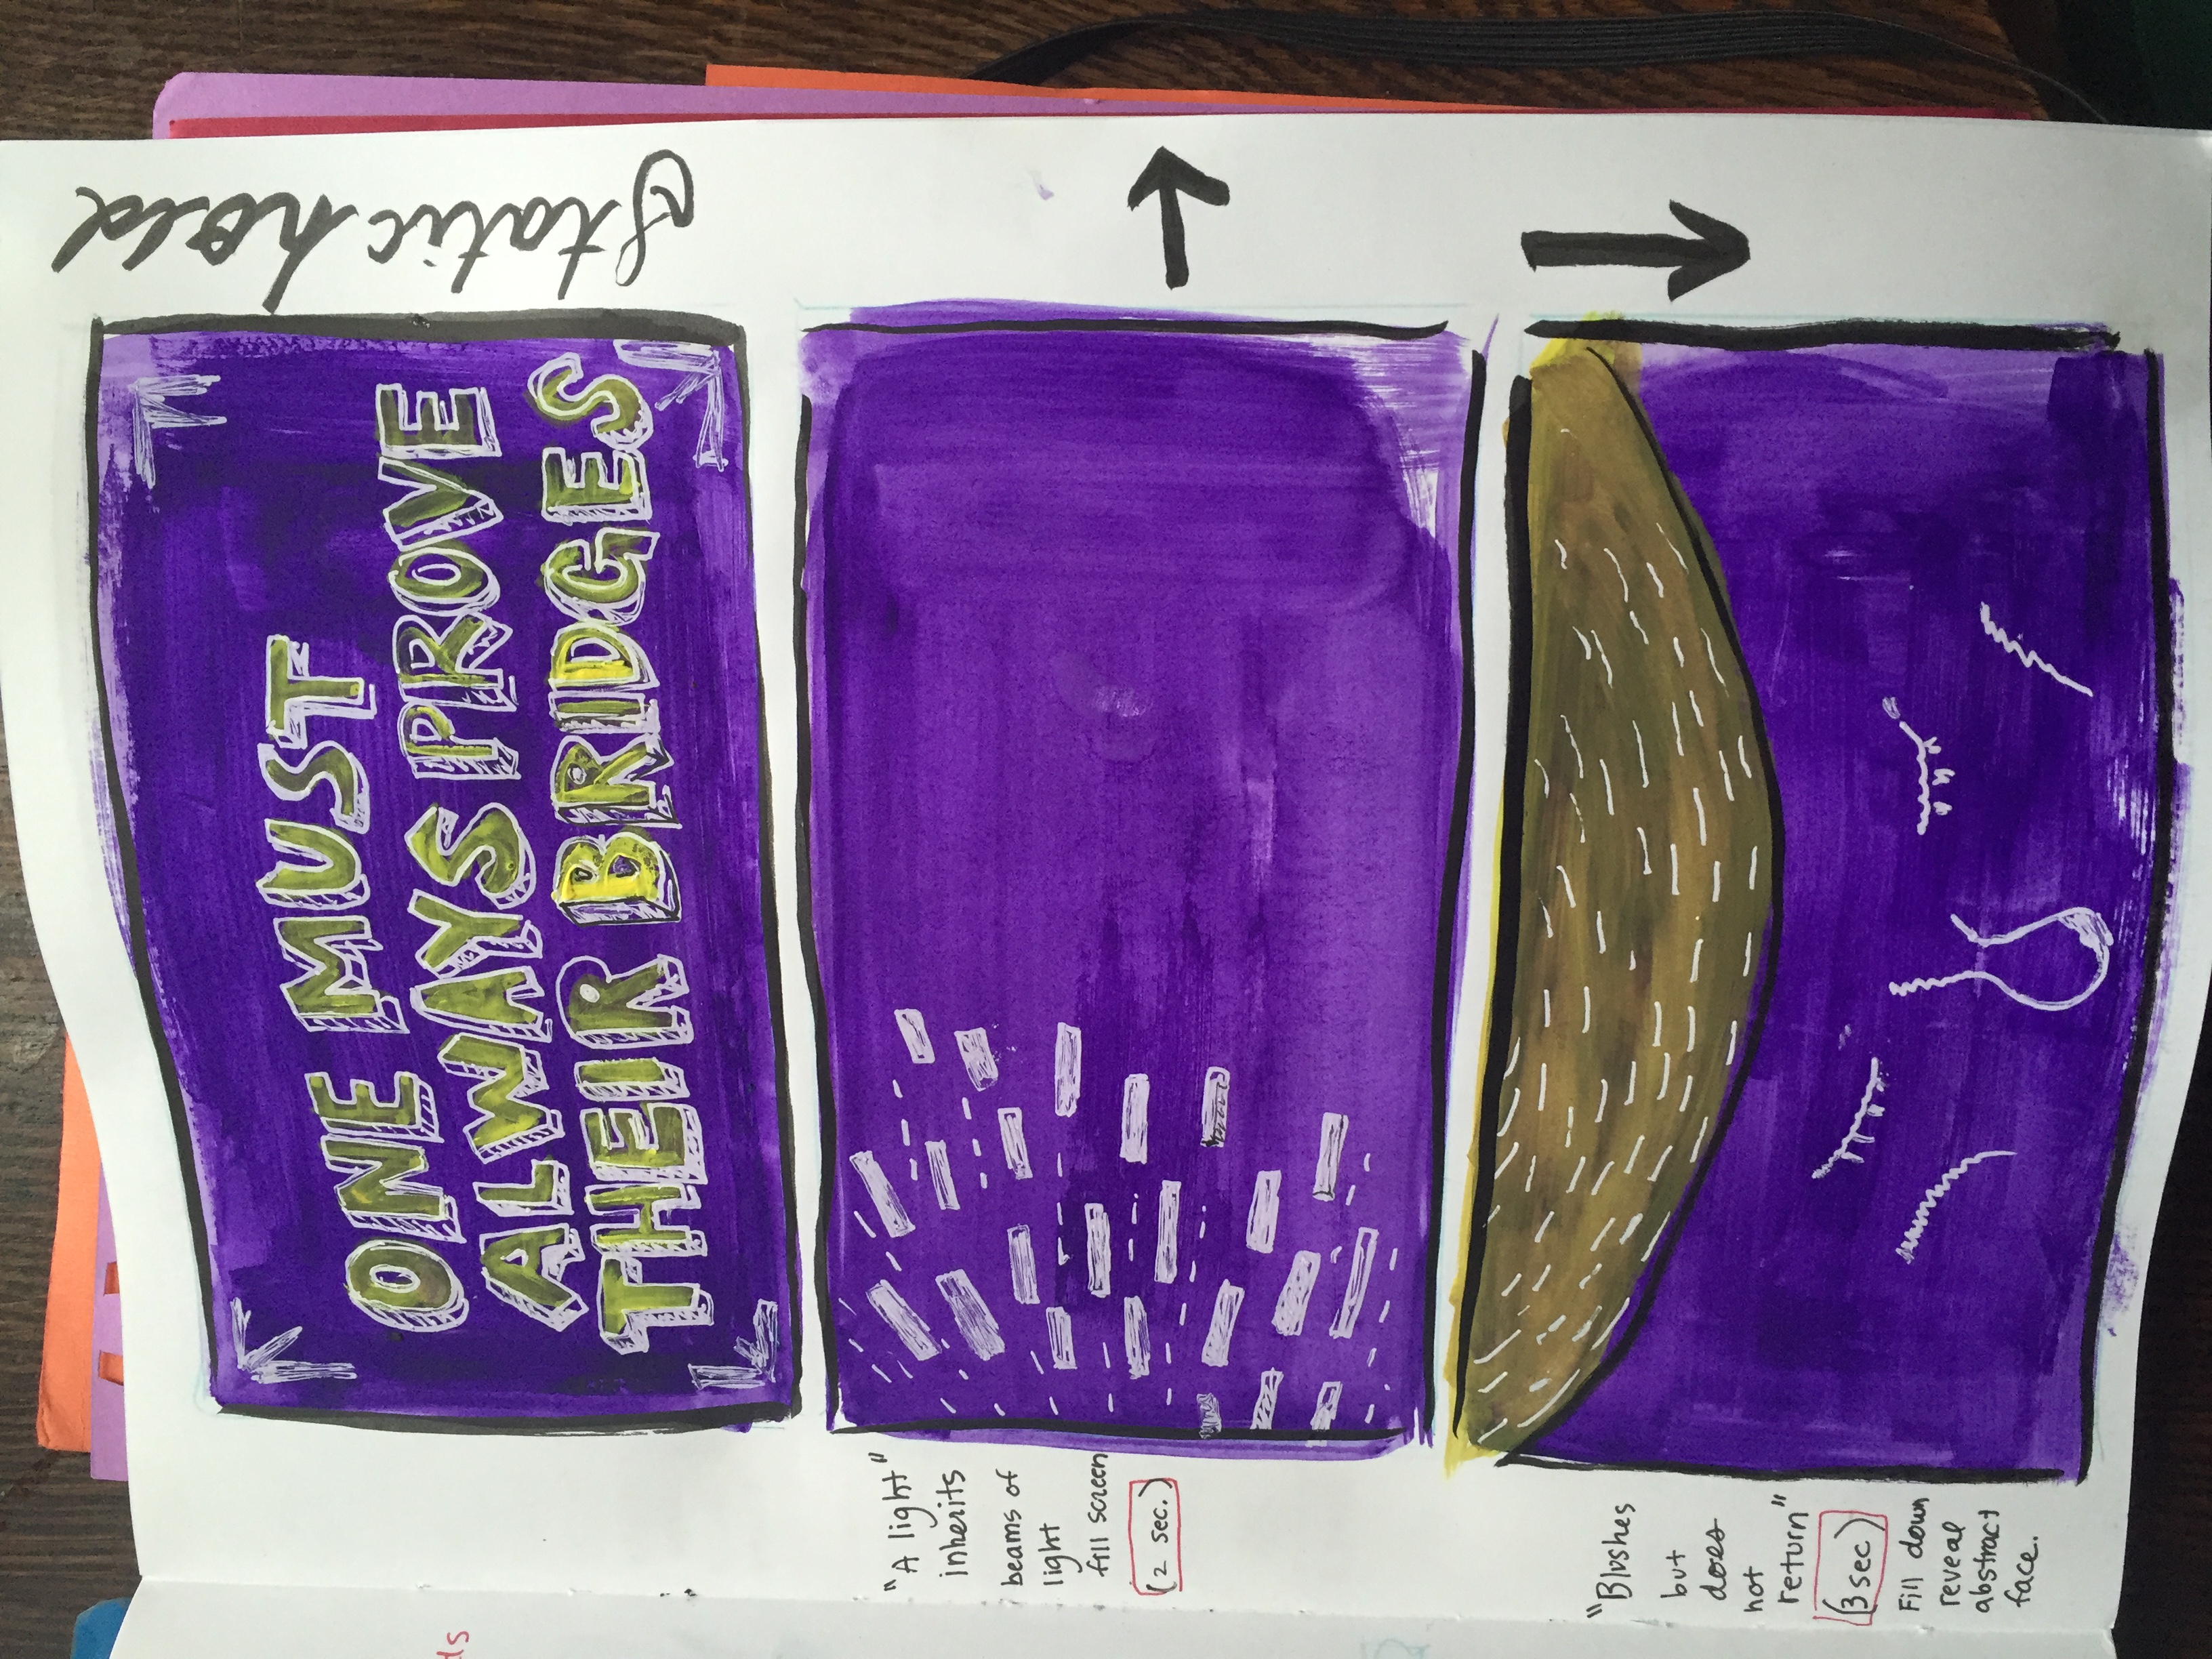 ds
ONE MUST
ALWAYS PROVE
THEIR BRIDGES
Static hold
"A light"
inherits
beams of
light
fill screen
(2 sec.)
"Blushes
but
does
not
return"
(3 sec)
Fill down
reveal
abstract
face.